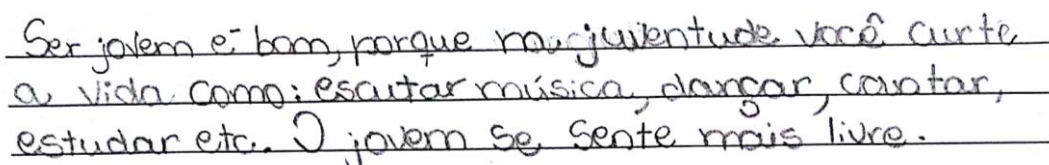 Ser jovem é bom, porque na juventude você curte
a vida como: escutar música, dançar, cantar,
estudar etc. O jovem se sente mais livre.